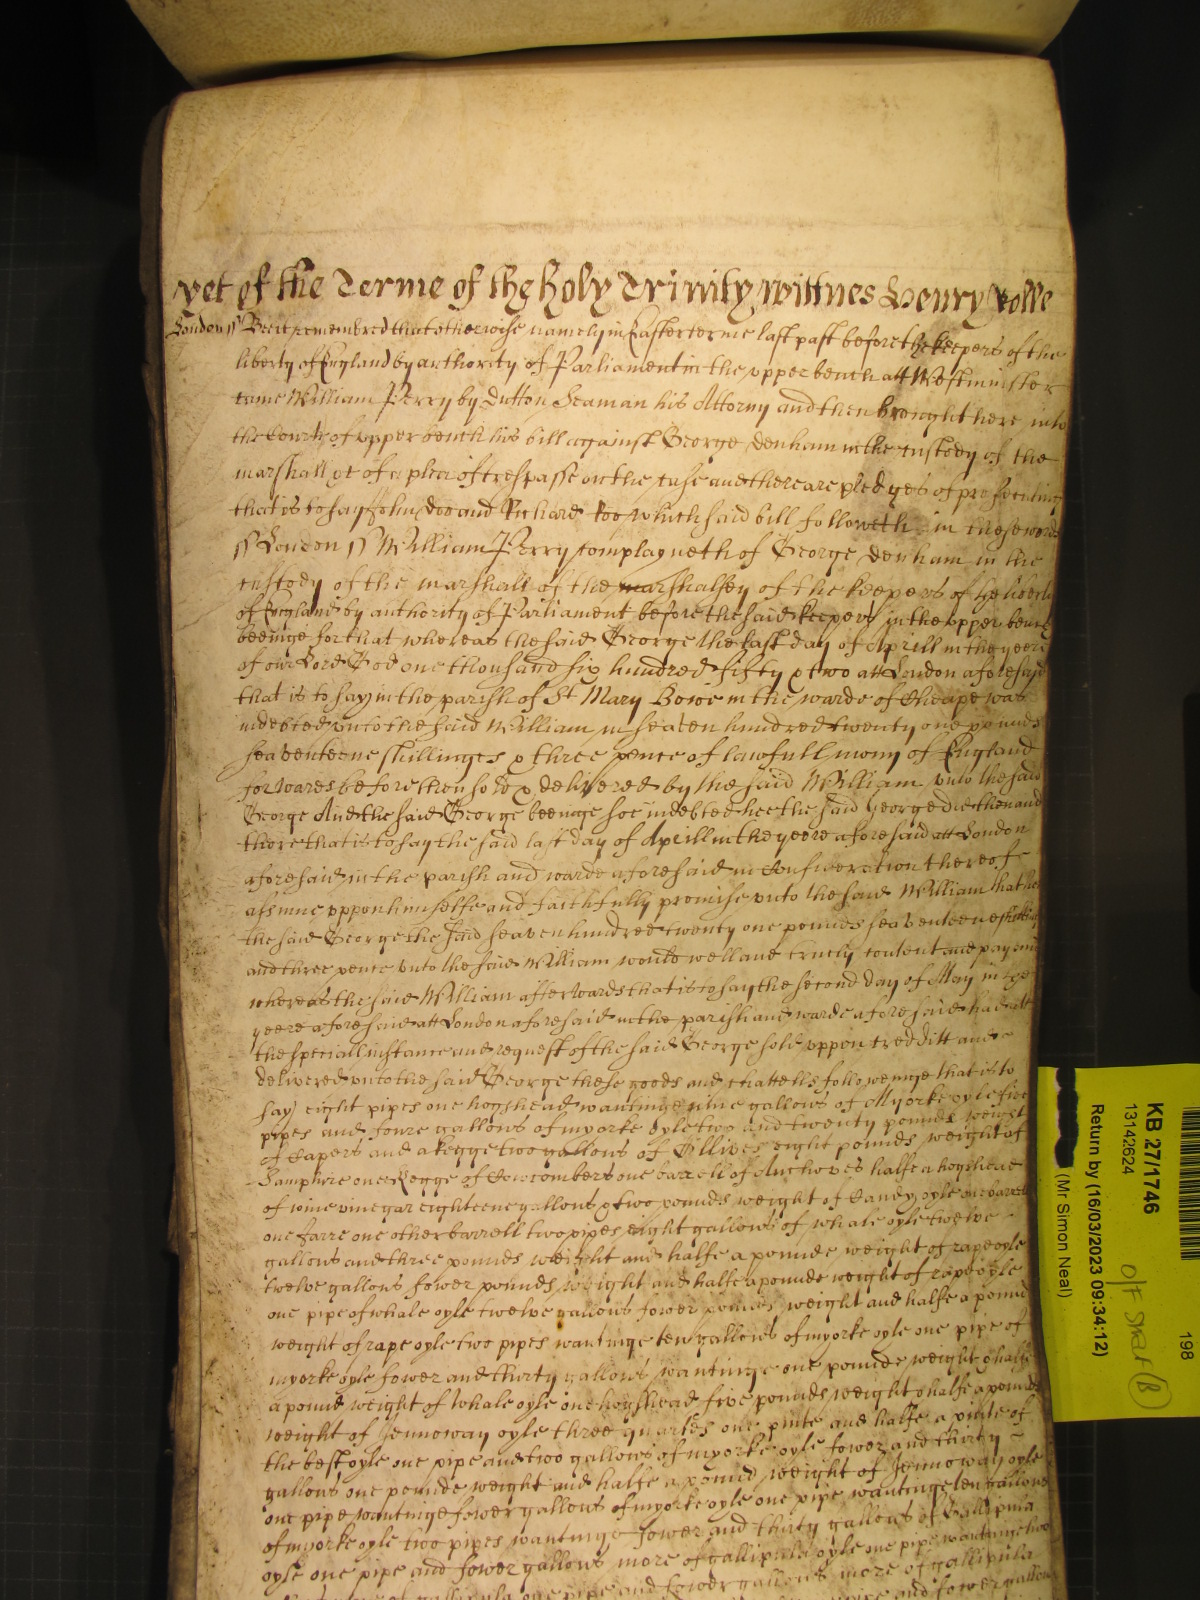 yet of the Terme of the holy Trinity wittnes Henry Rolle
London ss Bee it remembred that otherwise namely in Easter terme last past before the keepers of the
liberty of England by authority of Parliament in the upper bench att Westminster
came William Perry by Dutton Seaman his Attorny and then brought here into
the Court of upper bench his bill against George Denham in the custody of the
marshall &t of a plea of trespasse on the case and there are pledges of prosecuting
that is to say John Doo and Richard Roo which said bill followeth in these words
ss London ss William Perry complayneth of George Denham in the
custody of the marshall of the marshalsey of the keepers of the liberty
of England by authority of Parliament before the said keepers in the upper bench
beeinge for that whereas the said George the last day of Aprill in the yeere
of our Lord God one thousand six hundred fifty & two att London aforesaid
that is to say in the parish of St Mary Bowe in the warde of Cheape was
indebted unto the said William in seaven hundred twenty one pounds
seaventeene shillinges & three pence of lawfull mony of England
for wares before then sold & delivered by the said William unto the said
George And the said George beeinge soe indebted hee the said George did then and
there that is to say the said last day of Aprill in the yeere aforesaid att London
aforesaid in the parish and warde aforesaid in consideration thereof
assume uppon himselfe and faithfully promise unto the said William that hee
the said George the said seaven hundred twenty one pounds seaventeene shillings
and three pence unto the said William would well and truely content and pay and
whereas the said William afterwards that is to say the second day of May in the
yeere aforesaid att London aforesaid in the parish and warde aforesaid had att
the speciall instance and request of the said George sold uppon creditt and
delivered unto the said George these goods and chattells followeinge that is to
say eight pipes one hogshead wantinge nine gallons of Myorke oyle five
pipes and foure gallons of myorke oyle two and twenty pounds weight
of Capers and a kegge two gallons of Ollives eight pounds weight of
Samphire one kegge of Cowcombers one barrell of Anchoves halfe a hogshead
of wine vinegar eighteene gallons & two pounds weight of Candy oyle one barrell
one Jarre one other barrell two pipes eight gallons of whale oyle twelve
gallons and three pounds weight and halfe a pounde weight of rape oyle
twelve gallons fower pounds weight and halfe a pounde weight of rape oyle
one pipe of whale oyle twelve gallons fower pounds weight and halfe a pound
weight of rape oyle two pipes wantinge ten gallons of myorke oyle one pipe of
myorke oyle fower and thirty gallons wantinge one pounde weight & halfe
a pound weight of whale oyle one hogshead five pounds weight & halfe a pounde
weight of Jennoway oyle three quartes one pinte and halfe a pinte of
the best oyle one pipe and two gallons of myorke oyle fower and thirty
gallons one pounde weight and halfe a pound weight of Jennoway oyle
one pipe wantinge fower gallons of myorke oyle one pipe wantinge ten gallons
of myorke oyle two pipes wantinge fower and thirty gallons of Gallipula
oyle one pipe and fower gallons more of Gallipula oyle one pipe wantinge two
one pipe and fower gallons more of gallipula
KB 27/1746
13142624
Return by (16/03/2023 09:34:12)
(Mr Simon Neal)
198